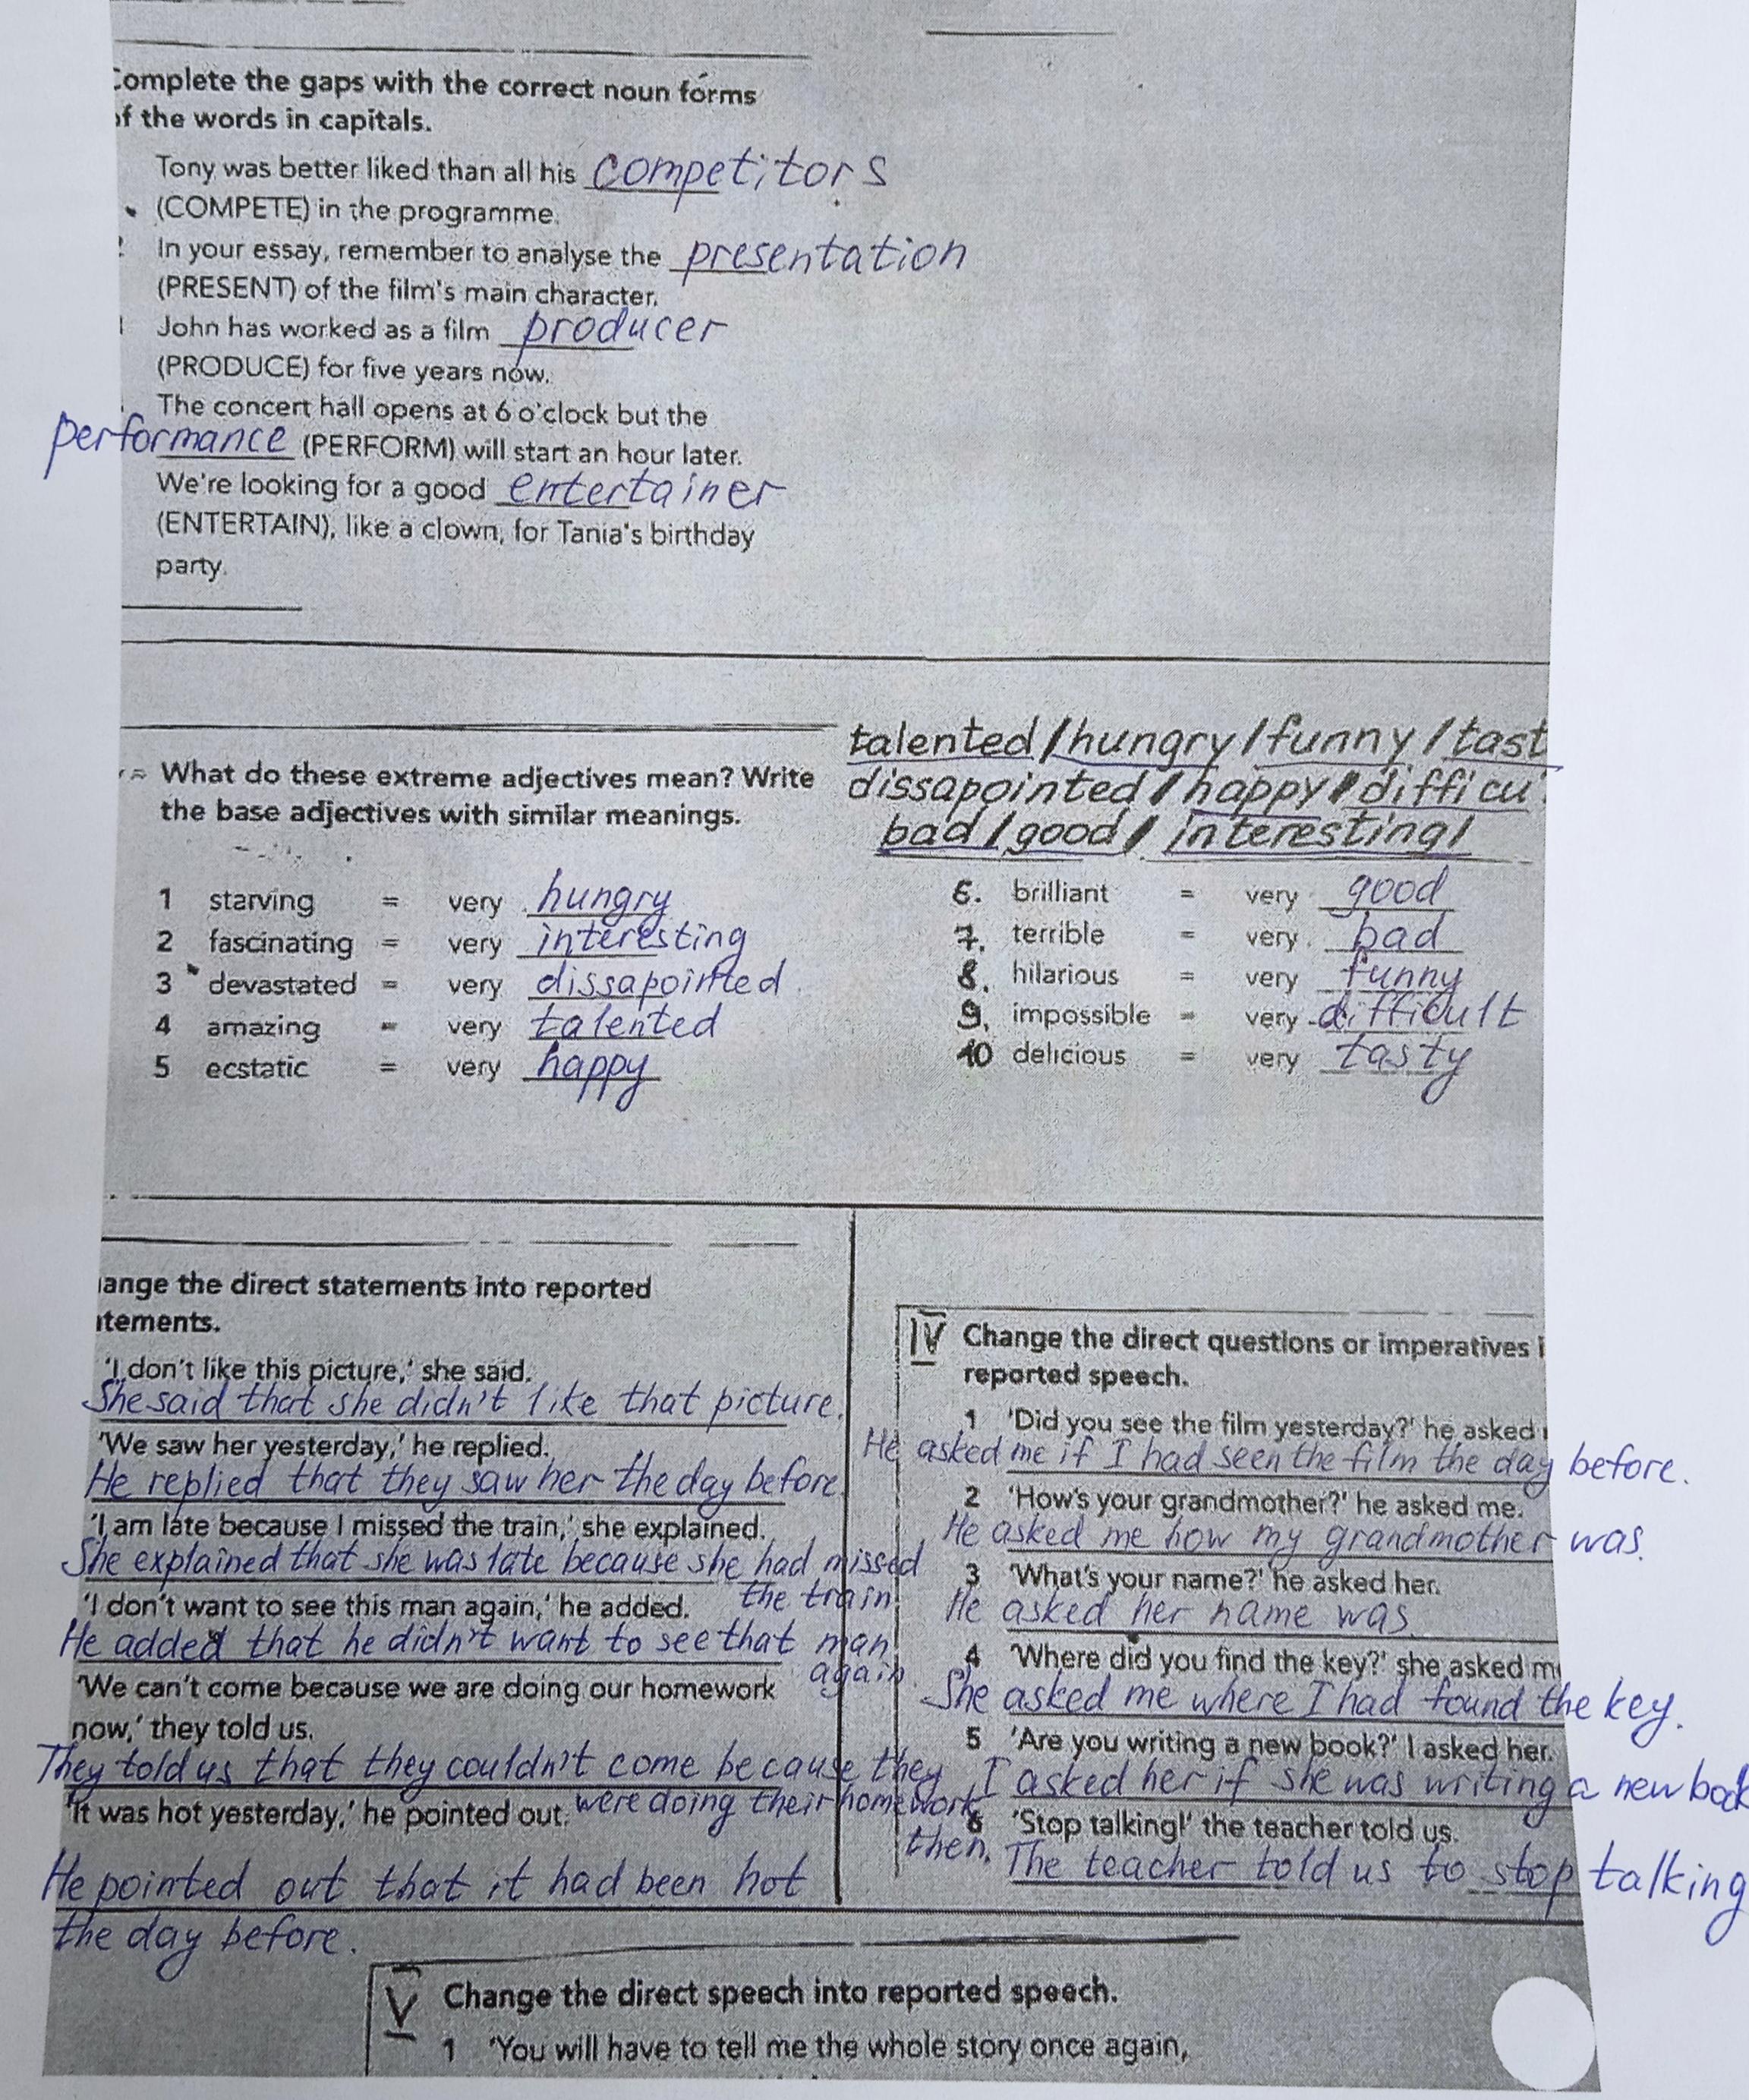 Complete the gaps with the correct noun forms
of the words in capitals.
Tony was better liked than all his competitors
(COMPETE) in the programme.
In your essay, remember to analyse the presentation
(PRESENT) of the film's main character.
John has worked as a film producer
(PRODUCE) for five years now.
The concert hall opens at 6 o'clock but the
performance (PERFORM) will start an hour later.
We're looking for a good entertainer
(ENTERTAIN), like a clown, for Tania's birthday
party.
talented / hungry / funny / tast
dissapointed / happy / difficu
bad / good / interesting /
What do these extreme adjectives mean? Write
the base adjectives with similar meanings.
1 starving = very hungry
2 fascinating = very interesting
3 devastated = very dissapointed
4 amazing = very talented
5 ecstatic = very happy
6. brilliant = very good
7. terrible = very bad
8. hilarious = very funny
9. impossible = very difficult
10 delicious = very tasty
ange the direct statements into reported
tements.
'I don't like this picture,' she said.
She said that she didn't like that picture.
'We saw her yesterday,' he replied.
He replied that they saw her the day before.
'I am late because I missed the train,' she explained.
She explained that she was late because she had missed
the train.
'I don't want to see this man again,' he added.
He added that he didn't want to see that man
again.
'We can't come because we are doing our homework
now,' they told us.
They told us that they couldn't come because they
were doing their homework
then.
'It was hot yesterday,' he pointed out.
He pointed out that it had been hot
the day before.
IV Change the direct questions or imperatives i
reported speech.
1 'Did you see the film yesterday?' he asked
He asked me if I had seen the film the day before.
2 'How's your grandmother?' he asked me.
He asked me how my grandmother was.
3 'What's your name?' he asked her.
He asked her name was.
4 'Where did you find the key?' she asked m
She asked me where I had found the key.
5 'Are you writing a new book?' I asked her.
I asked her if she was writing a new book
6 'Stop talking!' the teacher told us.
The teacher told us to stop talking
V Change the direct speech into reported speech.
1 'You will have to tell me the whole story once again,